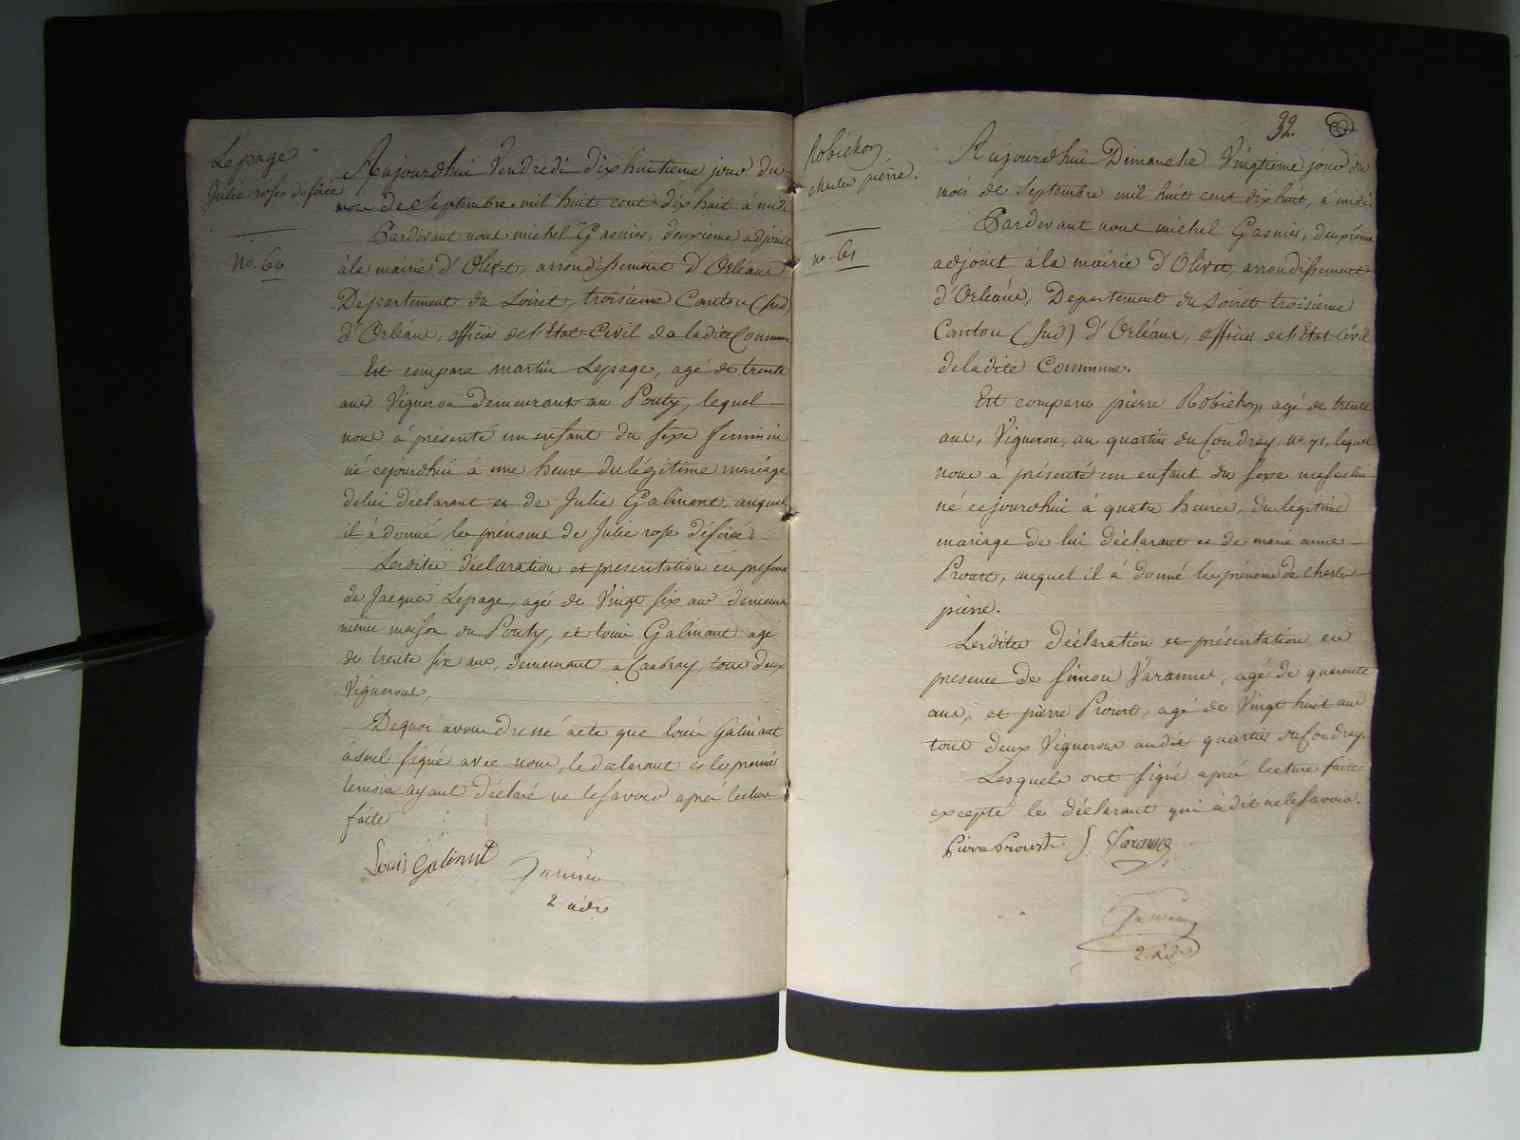 Lepage
Julie rose désirée
No. 60
Aujourdhui Vendredi dix huitieme jour du
mois de Septembre mil huit cent dix huit à midi
Pardevant nous michel Gasnier, deuxieme adjoint
à la mairie d'Olivet, arrondissement d'Orléans
Département du Loiret, troisieme Canton (sud)
d'Orléans, officier de l'Etat-Civil de ladite Commune
Est comparu martin Lepage, agé de trente
ans Vigneron demeurant au Pouty, lequel
nous à présenté un enfant du sexe féminin
né cejourdhui à une heure du légitime mariage
de lui déclarant et de Julie Galinont, auquel
il à donné les prénoms de Julie rose désirée
Lesdites déclaration et présentation en présence
de Jacques Lepage, agé de Vingt six ans demeurant
même maison au Pouty, et louis Galinant agé
de trente six ans, demeurant a Caubray, tous deux
Vignerons,
Dequoi avons dressé acte que louis Galinant
à seul signé avec nous, le déclarant et le premier
temoin ayant déclaré ne le savoir après lecture
faite
Louis Galinnt
2 adj
99
Robichon
charles pierre.
no. 61
Aujourdhui Dimanche Vingtieme jour du
mois de Septembre mil huit cent dix huit, à midi
Pardevant nous michel Gasnier, deuxieme
adjoint à la mairie d'Olivet, arrondissement
d'Orléans, Departement du Loiret troisieme
Canton (sud) d'Orléans, officier de l'Etat Civil
de ladite Commune.
Est comparu pierre Robichon, agé de trente
ans, Vigneron, au quartier du Coudray, no 71, lequel
nous a présenté un enfant du sexe masculin
né cejourdhui à quatre heures, du légitime
mariage de lui déclarant et de marie anne
Proust, auquel il à donné les prénoms de charles
pierre.
Lesdites déclaration et présentation en
presence de simon Varanne, agé de quarante
ans, et pierre Proust, agé de Vingt huit ans
tous deux Vignerons audit quartier du Coudray.
Lesquels ont signé après lecture faite
excepté le déclarant qui à dit ne le savoir.
Pierre Proust S. Varanne
2. adj